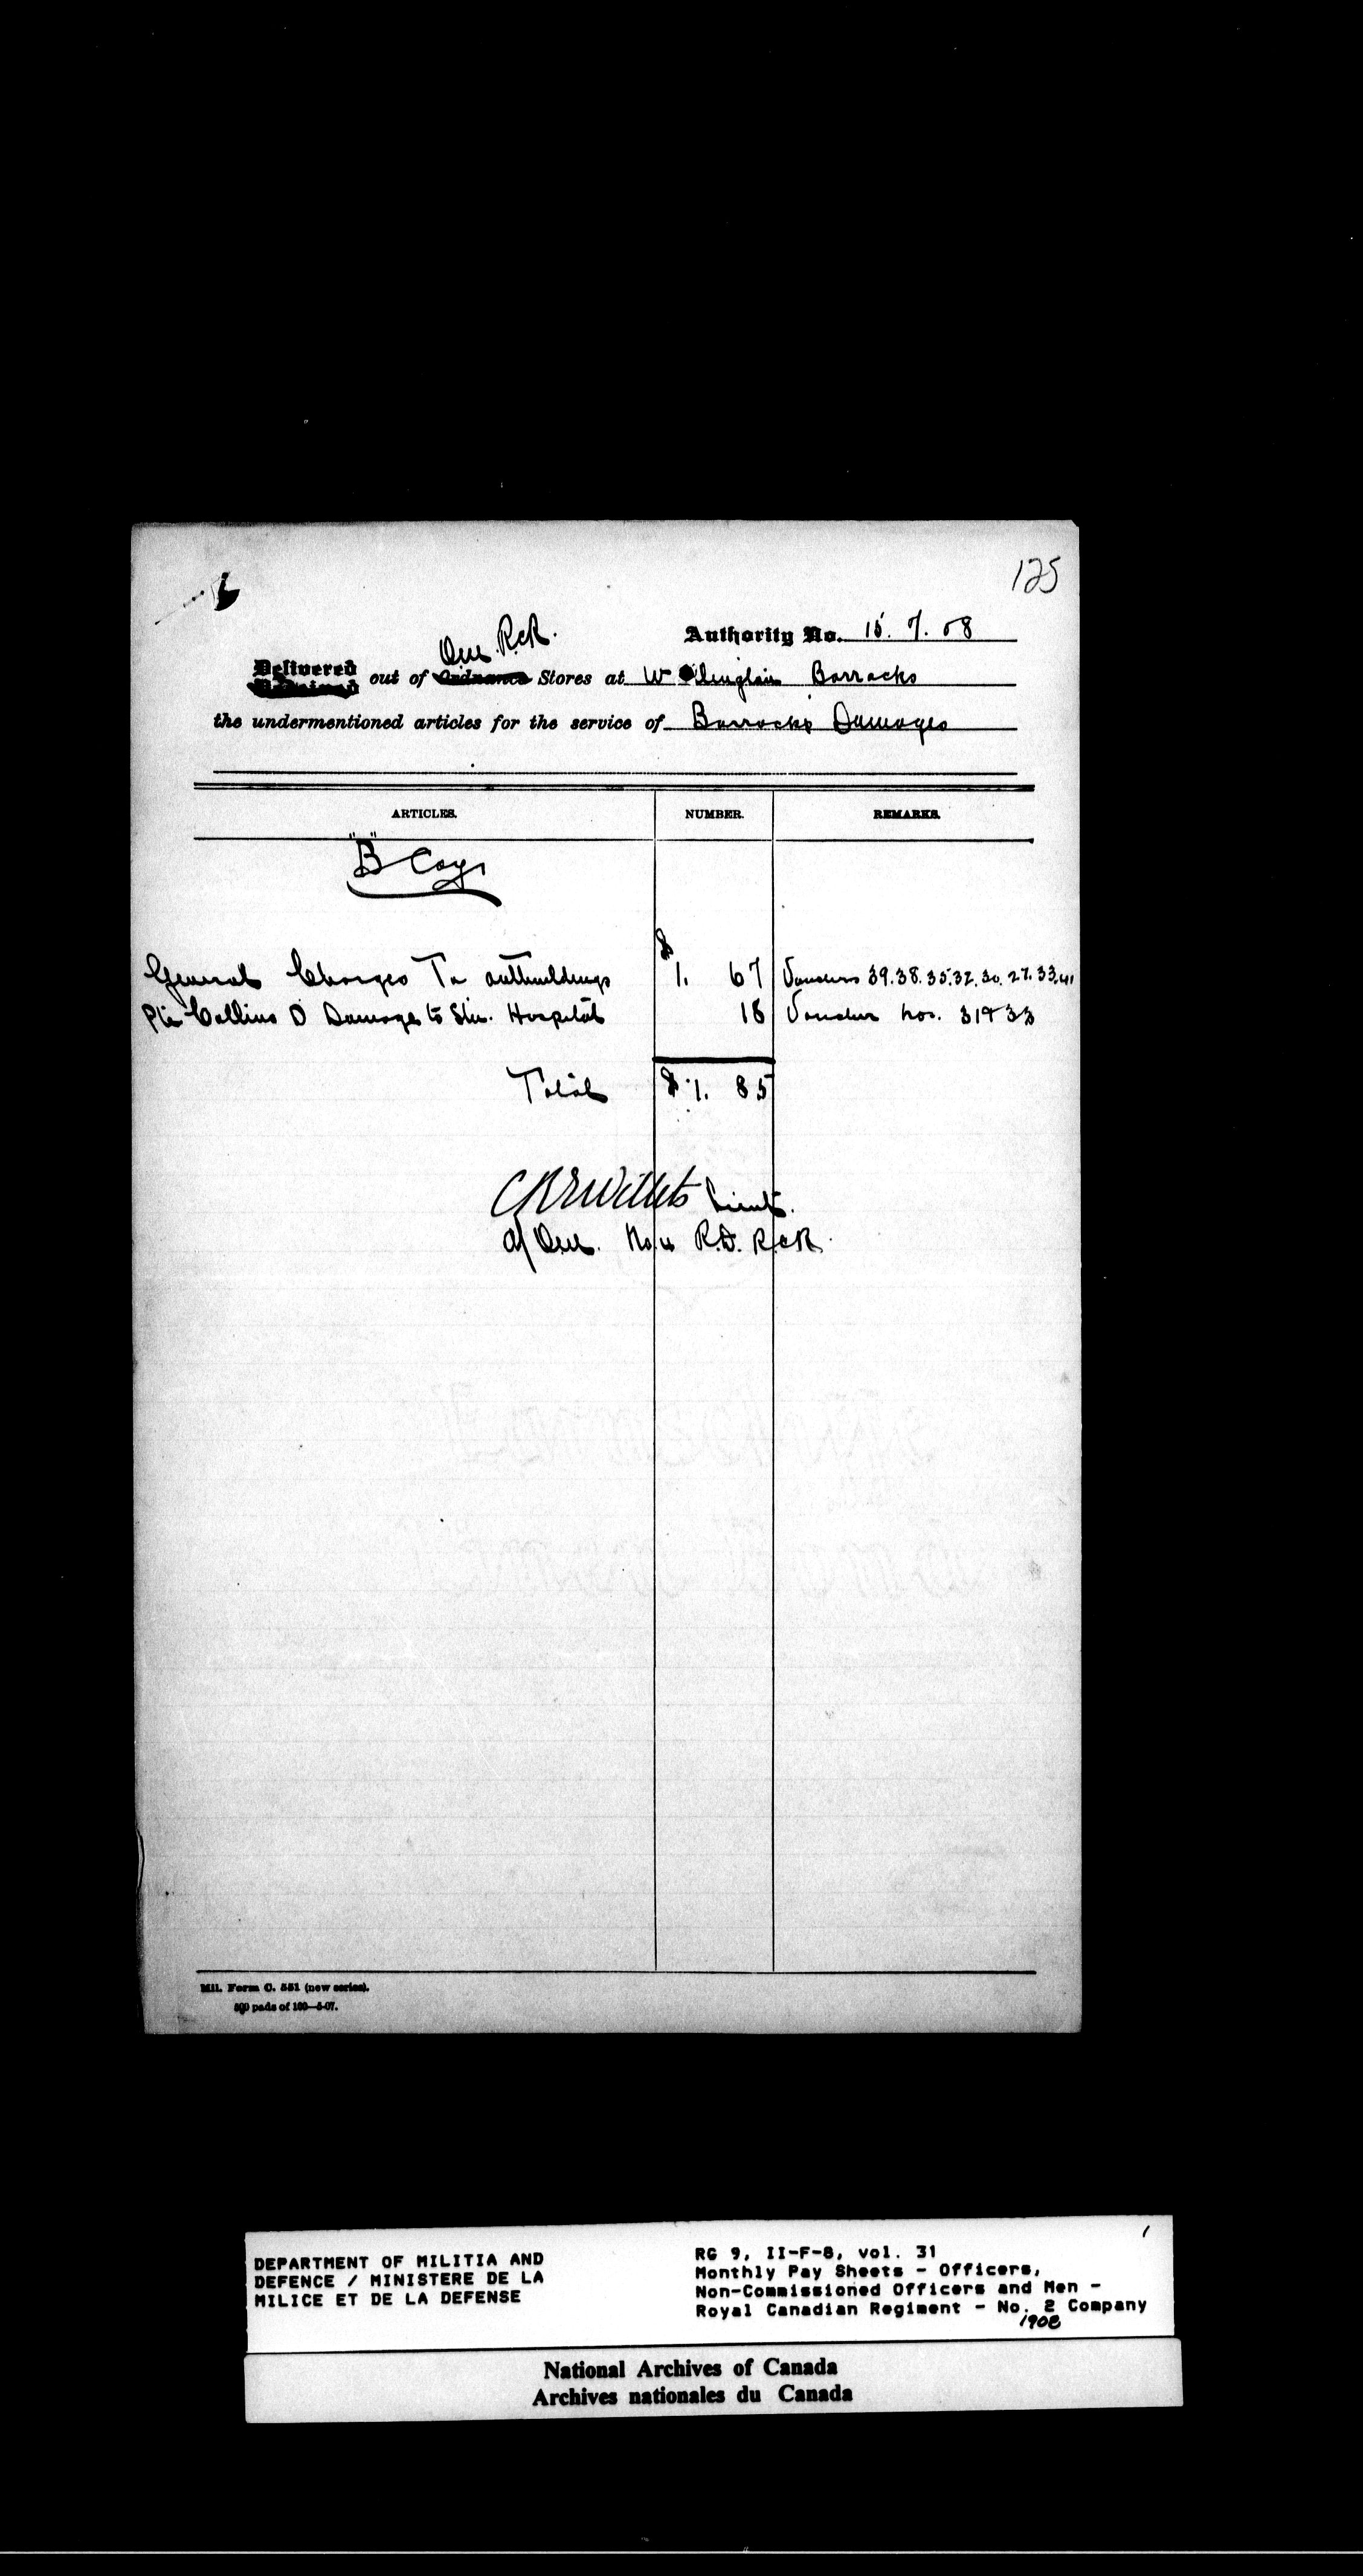 125
Authority No. 15. 7. 08
R.C.R.
Delivered out of Ordnance Stores at Wellington Barracks
the undermentioned articles for the service of Barracks Damages
ARTICLES. NUMBER. REMARKS.
"B" Coy
$
General Charges To outbuildings 1. 67 Vouchers 39.38.35.32.30.27.33.41
Pte Collins D Damage to Stn. Hospital 18 Voucher Nos. 31 & 33
Total $1. 85
Willets Lieut.
R.D. R.C.R.
Mil. Form C. 551 (new series).
500 pads of 100—5-07.
DEPARTMENT OF MILITIA AND
DEFENCE / MINISTERE DE LA
MILICE ET DE LA DEFENSE
RG 9, II-F-8, vol. 31
Monthly Pay Sheets - Officers,
Non-Commissioned Officers and Men -
Royal Canadian Regiment - No. 2 Company
1908
National Archives of Canada
Archives nationales du Canada